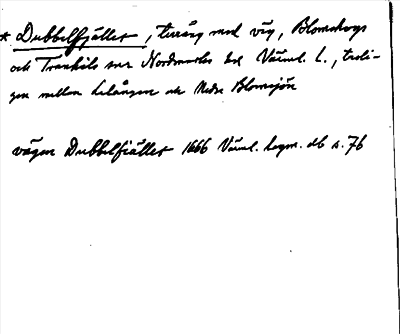 * Dubbelfjället, terräng med väg, Blomskogs
och Trankils snr Nordmarks hd Värml. l., troli-
gen mellan Lelången och Nedre Blomsjön
vägen Dubbelfiället 1666 Värml. lagm. db s. 76